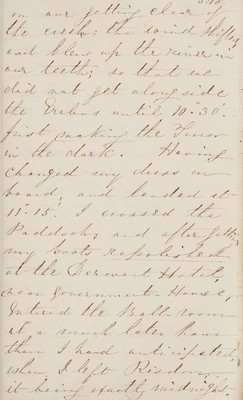 on our getting clear of
the creek; the wind shifted,
and blew up the river in
our teeth; so that we
did not get alongside
the Erebus until 10.30.-
just making the Terror
in the dark. Having
changed my dress on
board, and landed at
11.15. I crossed the
Paddock; and after getting
my boots repolished
at the Derwent Hotel,
near Government-House,
Entered the Ball-room
at a much later hour
than I had anticipated,
when I left Risdon,
it being exactly midnight.